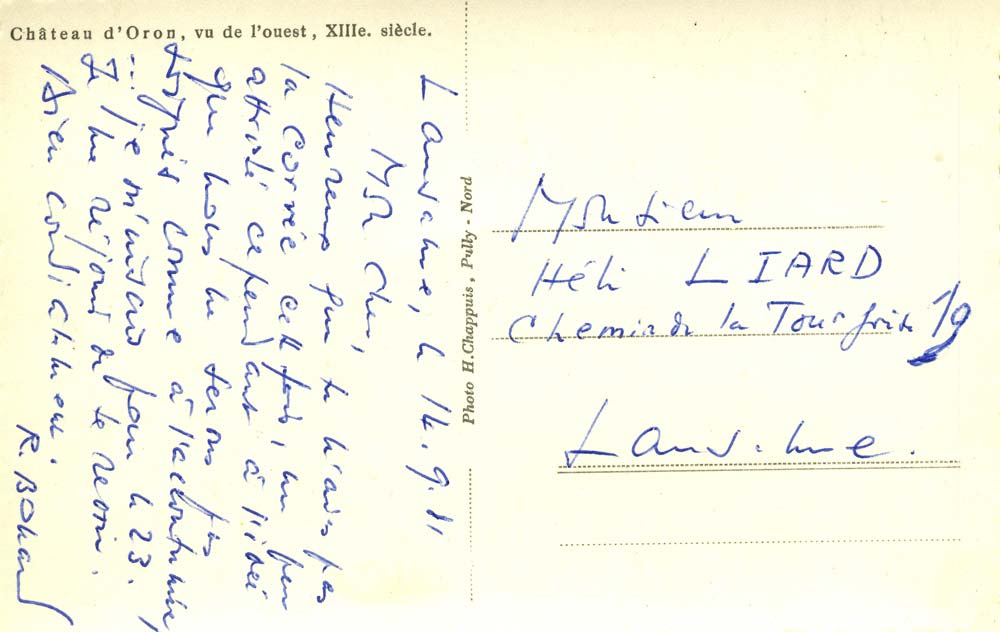 Château d'Oron, vu de l'ouest, XIIIe. siècle.
Lausanne, le 14.9.81
Mon cher,
Heureux que tu n'aies pas
la corvée cette fois, un peu
attristé cependant à l'idée
que nous ne serons pas
soignés comme à l'accoutumée,
... je m'inscris pour le 23.
Je me réjouis de te revoir.
Bien cordialement.
Photo H. Chappuis, Pully - Nord
Monsieur
Héli LIARD
Chemin de la Tour grise 19
Lausanne.